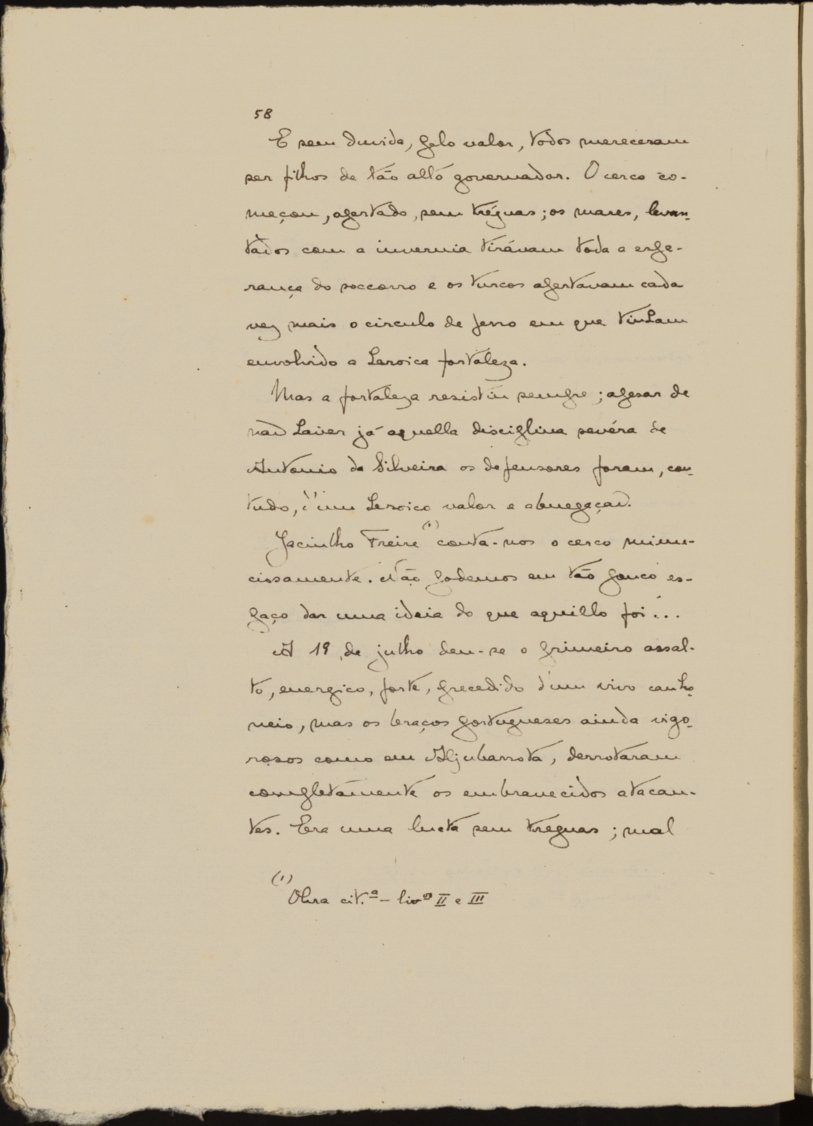 58
E sem duvida, pelo valor, todos mereceram
ser filhos de tão alto governador. O cerco co-
meçou, apertado, sem tréguas; os mares, levan-
tados com a invernia tirávam toda a espe-
rança do soccorro e os turcos apertavam cada
vez mais o circulo de ferro em que tinham
envolvido a heroica fortaleza.
Mas a fortaleza resistiu sempre; apesar de
não haver já aquella disciplina sevéra de
Antonio da Silveira os defensores foram, con-
tudo, d'um heroico valor e abnegação.
Jacintho Freire (1) conta-nos o cerco minu-
ciosamente. Não podemos em tão pouco es-
paço dar uma ideia do que aquillo foi...
A 19 de julho deu-se o primeiro assal-
to, energico, forte, precedido d'um vivo canho-
neio, mas os braços portugueses ainda vigo-
rosos como em Aljubarrota, derrotaram
completamente os embravecidos atacan-
tes. Era uma lucta sem tréguas; mal
(1)
Obra cit.ª - livº II e III